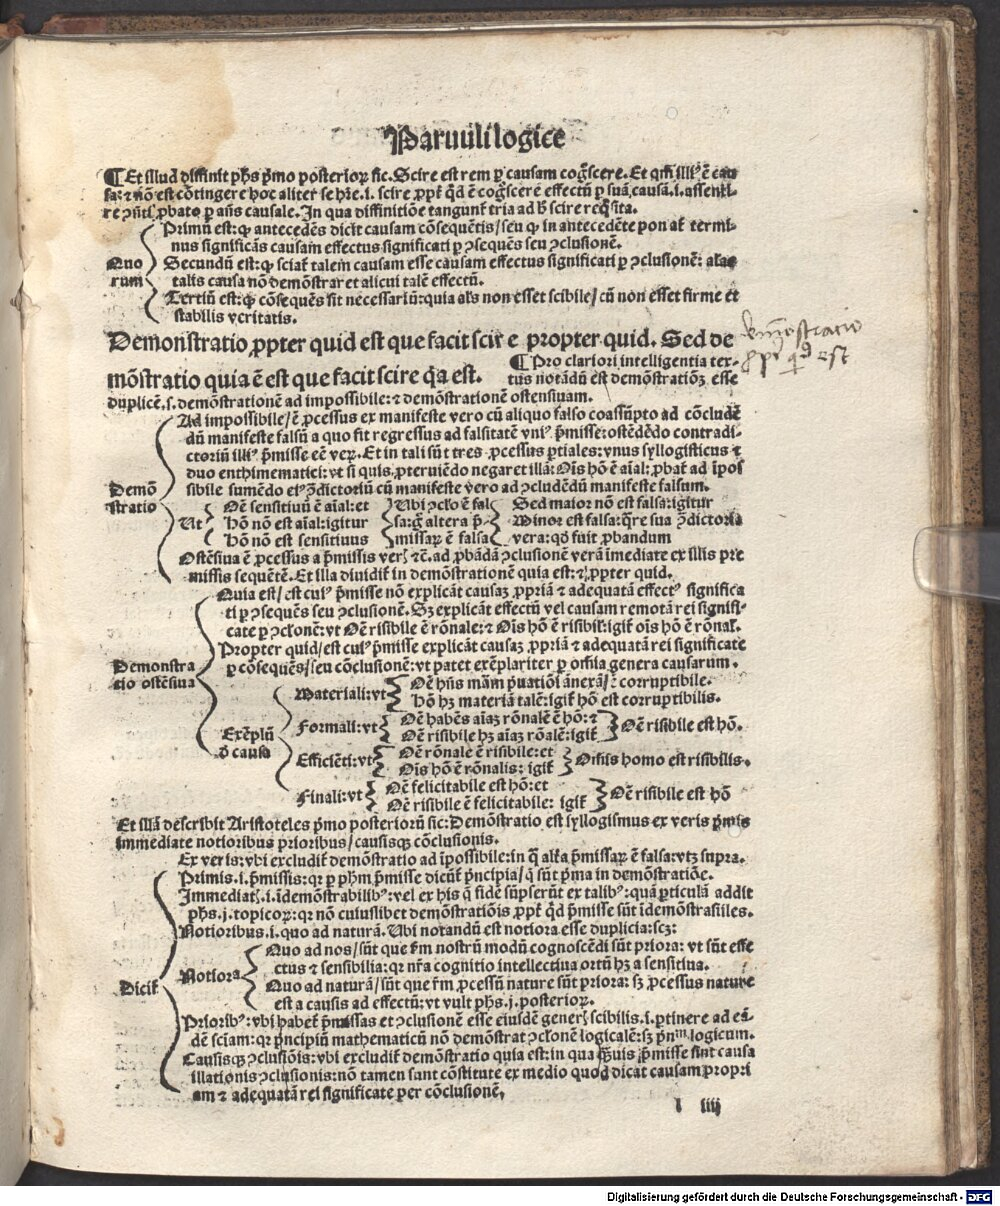 Paruuli logice
¶ Et illud diffinit ph̄s pͥmo posteriorꝝ sic. Scire est rem ꝑ causam cogͦscere. Et qm̄ illiꝰ ē cau
sa: ⁊ nō est cōtingere hoc aliter se hr̄e .i. scire ꝓpt̄ qd̓ ē cogͦscere effectū ꝑ suā causā .i. assenti-
re ꝯn̄ti ꝓbato ꝑ an̄s causale. In qua diffinitiōe tangunt̄ tria ad
Primū est: ꝙ antecedēs dicit causam cōsequētis/ seu ꝙ in antecedēte ponat̄ termi-
nus significās causam effectus significati ꝑ ꝯsequēs seu ꝯclusionē.
Quo
rum
Secundū est: ꝙ sciat̄ talem causam esse causam effectus significati ꝑ ꝯclusionē: alias
talis causa nō demōstraret alicui talē effectū.
Tertiū est: ꝙ cōsequēs sit necessariū: quia als̄ non esset scibile/ cū non esset firme et
stabilis veritatis.
Demonstratio ꝓpter quid est que facit scire propter quid. Sed de
mōstratio quia ē est que facit scire qꝛa est.
¶ Pro clariori intelligentia tex-
tus notādū est demōstratiōꝫ esse
duplicē .s. demōstrationē ad impossibile: ⁊ demōstrationē ostensiuam.
demōstracio
ꝓpt̄ qͥd est
Demō
stratio
Ad impossibile/ ē ꝓcessus ex manifeste vero cū aliquo falso coassūpto ad cōcludē
dū manifeste falsū a quo fit regressus ad falsitatē vniꝰ p̄misse: ostēdēdo contradi-
ctoriū illiꝰ p̄misse eē verꝝ. Et in tali sūt tres ꝓcessus ꝑtiales: vnus syllogisticus ⁊
duo enthimematici: vt si quis ꝓteruiēdo negaret illā: Oīs hō ē aīal: ꝓbat̄ ad īpos
sibile sumēdo eiꝰ ꝯ̄dictoriū cū manifeste vero ad ꝯcludēdū manifeste falsum.
Ut
Oē sensitiuū ē aīal: et
hō nō est aīal: igitur
hō nō est sensitiuus
Ubi ꝯclo ē fal
sa: gͦ altera p̄-
missaꝝ ē falsa
Sed maior nō est falsa: igitur
Minor est falsa: qͣre sua ꝯ̄dictoria
vera: qd̓ fuit ꝓbandum
Ostēsiua ē ꝓcessus a p̄missis veris ⁊c̄. ad ꝓbādā ꝯclusionē verā imediate ex illis pre
missis sequētē. Et illa diuidit̄ in demōstrationē quia est: ⁊ ꝓpter quid.
Demonstra
tio ostēsiua
Quia est/ est cuiꝰ p̄misse nō explicāt causaꝫ ꝓpriā ⁊ adequatā effectꝰ significa
ti ꝑ ꝯsequēs seu ꝯclusionē. Sꝫ explicāt effectū vel causam remotā rei signifi-
cate ꝑ ꝯclonē: vt Oē risibile ē rōnale: ⁊ Oīs hō ē risibil̓: igit̄ oīs hō ē rōnal̓.
Propter quid/ est cuiꝰ p̄misse explicāt causaꝫ ꝓpriā ⁊ adequatā rei significate
ꝑ cōsequēs/ seu cōclusionē: vt patet exēplariter ꝑ oīa genera causarum.
Exēplū
d̓ causa
Materiali: vt
Oē hn̄s mām p̄uatiōi ānexā/ ē corruptibile.
hō hꝫ materiā talē: igit̄ hō est corruptibilis.
Formali: vt
Oē habēs aīaꝫ rōnalē ē hō: ⁊
Oē risibile hꝫ aīaꝫ rōalē: igit̄
Oē risibile est hō.
Efficiēti: vt
Oē rōnale ē risibile: et
Oīs hō ē rōnalis: igit̄
Oīs homo est risibilis.
Finali: vt
Oē felicitabile est hō: et
Oē risibile ē felicitabile: igit̄
Oē risibile est hō
Et illā describit Aristoteles pͥmo posteriorū sic: Demōstratio est syllogismus ex veris pͥmis
immediate notioribus prioribus/ causisqꝫ cōclusionis.
Dicit̄
Ex veris: vbi excludit̄ demōstratio ad īpossibile: in qͣ alt̄a p̄missaꝝ ē falsa: vt supra.
Primis .i. p̄missis: qꝛ ꝑ ph̄m p̄misse dicūt̄ pͥncipia/ qͣ sūt pͥma in demōstratiōe.
Immediat̄ .i. īdemōstrabilibꝰ: vel ex his qͣ fidē sūpserūt ex talibꝰ: quā ꝑticulā addit
ph̄s .j. topicoꝝ: qꝛ nō cuiuslibet demōstratiōis ꝓpt̄ qd̓ p̄misse sūt īdemōstrabiles.
Notioribus .i. quo ad naturā. Ubi notandū est notiora esse duplicia: scꝫ:
Notiora
Quo ad nos/ sūt que km̄ nostrū modū cognoscēdi sūt priora: vt sūt effe
ctus ⁊ sensibilia: qꝛ nr̄a cognitio intellectiua ortū hꝫ a sensitiua.
Quo ad naturā/ sūt que km̄ ꝓcessū nature sūt priora: sꝫ ꝓcessus nature
est a causis ad effectū: vt vult ph̄s .j. posterioꝝ.
Prioribꝰ: vbi habet̄ p̄missas et ꝯclusionē esse eiusdē generis scibilis .i. ꝑtinere ad eā-
dē sciam: qꝛ pͥncipiū mathematicū nō demōstrat ꝯclonē logicalē: sꝫ pͥnᵐ logicum.
Causisqꝫ ꝯclusiōis: vbi excludit̄ demōstratio quia est: in qua qͣuis p̄misse sint causa
illationis ꝯclusionis: nō tamen sunt cōstitute ex medio quod dicat causam propri
am ⁊ adequatā rei significate per cōclusionē.
l iiij
Digitalisierung gefördert durch die Deutsche Forschungsgemeinschaft - DFG